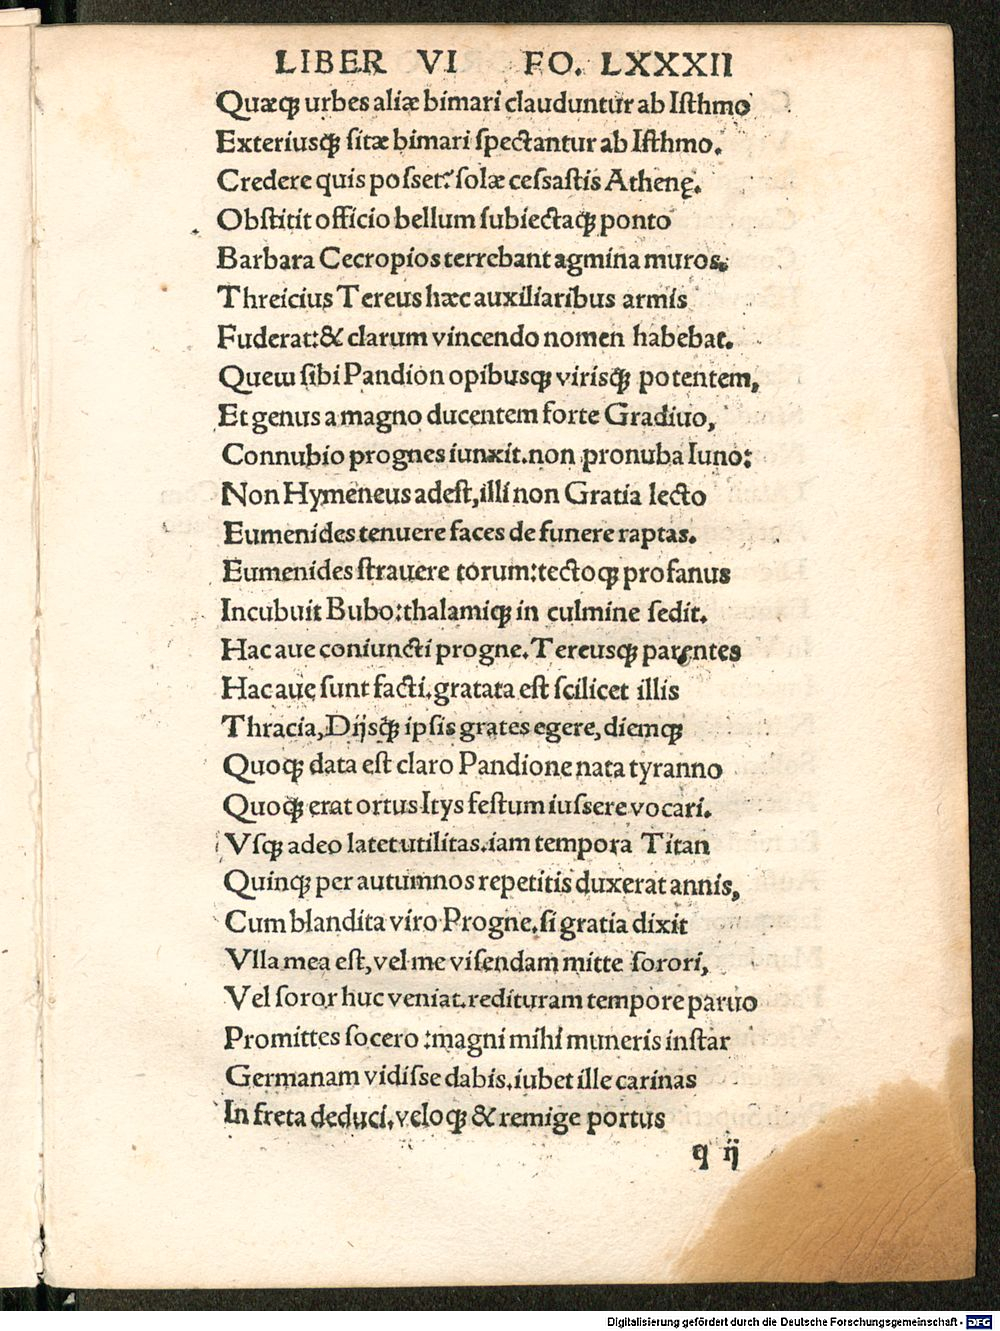 LIBER VI FO. LXXXII
Quæqꝫ urbes aliæ bimari clauduntur ab Iſthmo
Exteriusqꝫ ſitæ bimari ſpectantur ab Iſthmo.
Credere quis poſſet? ſolæ ceſſaſtis Athenę.
Obſtitit officio bellum ſubiectaqꝫ ponto
Barbara Cecropios terrebant agmina muros.
Threicius Tereus hæc auxiliaribus armis
Fuderat: & clarum vincendo nomen habebat.
Quem ſibi Pandion opibusqꝫ virisqꝫ potentem,
Et genus a magno ducentem forte Gradiuo,
Connubio prognes iunxit. non pronuba Iuno:
Non Hymeneus adeſt, illi non Gratia lecto
Eumenides tenuere faces de funere raptas.
Eumenides ſtrauere torum: tectoqꝫ profanus
Incubuit Bubo: thalamiqꝫ in culmine ſedit.
Hac aue coniuncti progne. Tereusqꝫ parentes
Hac aue ſunt facti. gratata eſt ſcilicet illis
Thracia, Dijsqꝫ ipſis grates egere, diemqꝫ
Quoqꝫ data eſt claro Pandione nata tyranno
Quoqꝫ erat ortus Itys feſtum iuſſere vocari.
Vſqꝫ adeo latet utilitas. iam tempora Titan
Quinqꝫ per autumnos repetitis duxerat annis,
Cum blandita viro Progne. ſi gratia dixit
Vlla mea eſt, vel me viſendam mitte ſorori,
Vel ſoror huc veniat. redituram tempore paruo
Promittes ſocero: magni mihi muneris inſtar
Germanam vidiſſe dabis. iubet ille carinas
In freta deduci. veloqꝫ & remige portus
q ij
Digitalisierung gefördert durch die Deutsche Forschungsgemeinschaft - DFG